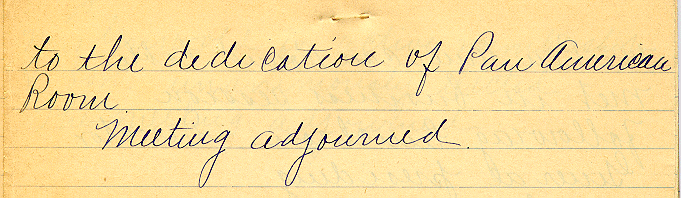 to the dedication of Pan American
Room.
Meeting adjourned.